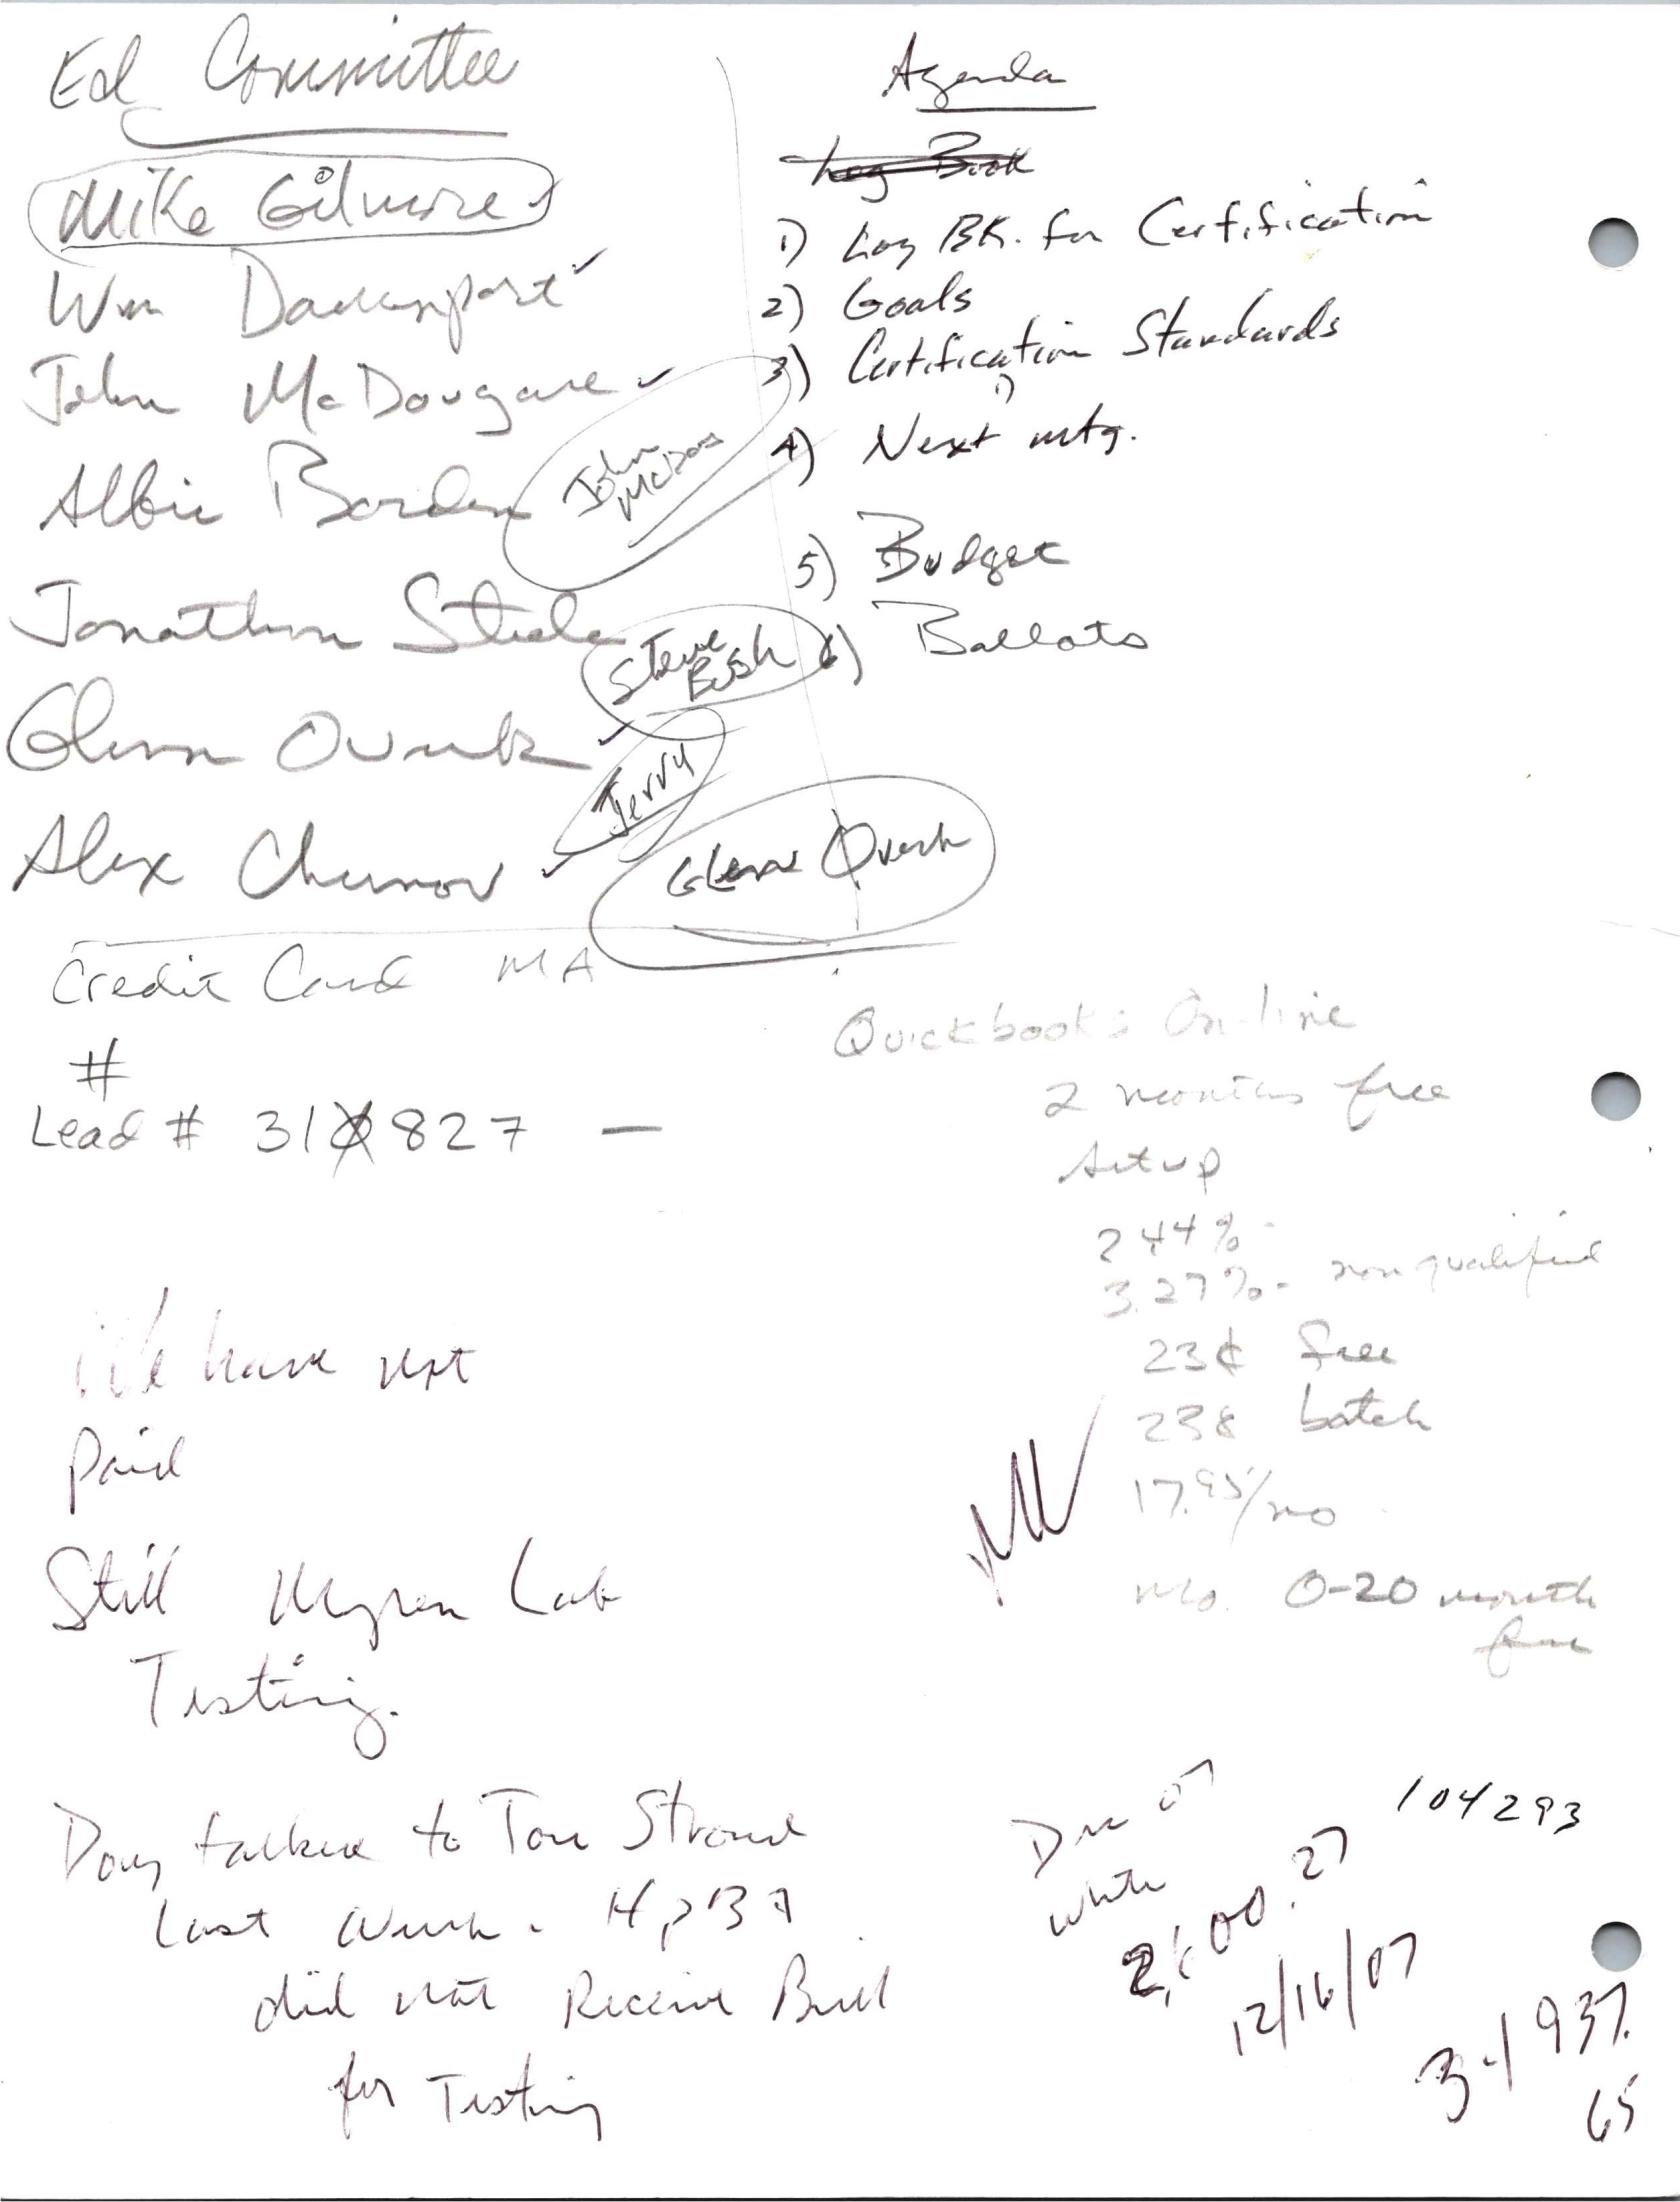 Ed Committee
Mike Gilmore
Wm Davenport
John McDougall
Albie Borden
Jonathan Steele
Glenn Overk
Alex Chernov
John McDou
Steve Bush
Jerry
Glenn Overk
Agenda
Log Book
1) Log BK. for Certification
2) Goals
3) Certification Standards
1)
4) Next mtg.
5) Budget
6) Ballots
Credit Card MA
#
Lead # 310827 —
Quickbooks On-line
2 months free
set up
2.44%
3.27% - nonqualified
23¢ free
23¢ batch
17.95/mo
mo. 0-20 month
We have not
paid
Still Myren Lab
Testing.
Doug talked to Tom Stroud
Last Week. HPBA
did not Receive Bill
for Testing
Dec 07
104293
2,600.27
12/16/07
937.
65